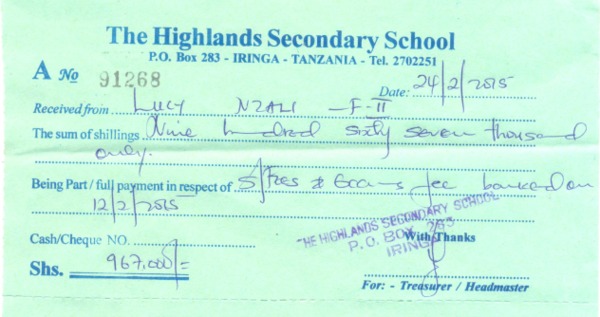 The Highlands Secondary School
P.O. Box 283 - IRINGA - TANZANIA - Tel. 2702251
A No 91268
Date: 24/2/2015
Received from LUCY NZALI F-II
The sum of shillings Nine hundred sixty seven thousand
only.
Being Part / full payment in respect of S/Fees & Exams fee banked on
12/2/2015
Cash/Cheque NO.
THE HIGHLANDS SECONDARY SCHOOL
P.O. BOX 283
IRINGA
With Thanks
Shs. 967,000/=
For: - Treasurer / Headmaster